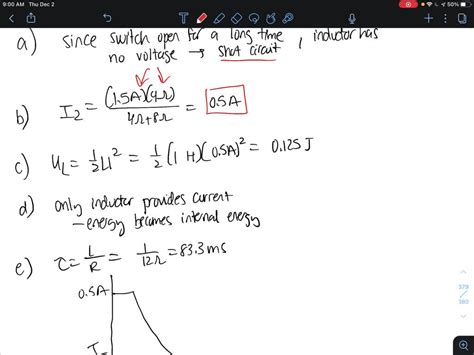 9:00 AM Thu Dec 2
50%
a) since switch open for a long time, inductor has
no voltage → short circuit
b) I₂ = (1.5A)(4Ω) / 4Ω+8Ω = 0.5A
c) U_L = 1/2 LI² = 1/2 (1 H)(0.5A)² = 0.125 J
d) only inductor provides current
– energy becomes internal energy
e) τ = L/R = 1/12Ω = 83.3 ms
0.5A
379
380